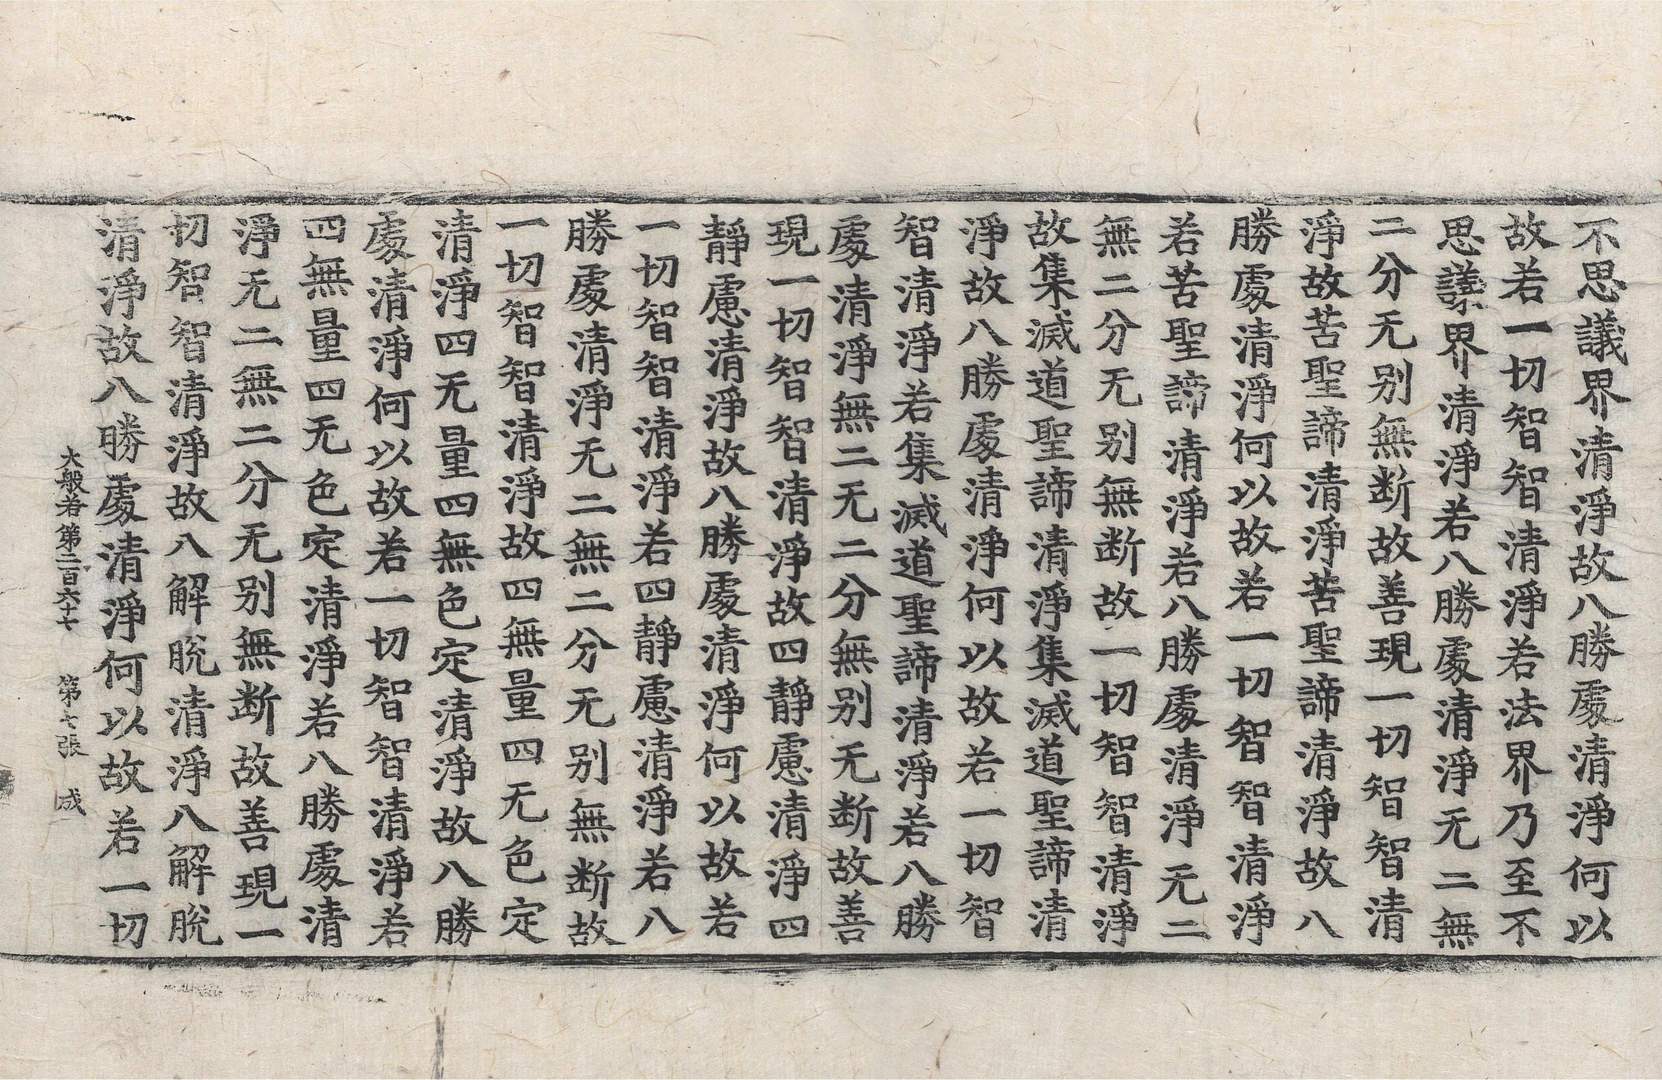 不思議界清淨故八勝處清淨何以
故若一切智智清淨若法界乃至不
思議界清淨若八勝處清淨无二無
二分无别無断故善現一切智智清
淨故苦聖諦清淨苦聖諦清淨故八
勝處清淨何以故若一切智智清淨
若苦聖諦清淨若八勝處清淨无二
無二分无别無断故一切智智清淨
故集滅道聖諦清淨集滅道聖諦清
淨故八勝處清淨何以故若一切智
智清淨若集滅道聖諦清淨若八勝
處清淨無二无二分無别无断故善
現一切智智清淨故四靜慮清淨四
靜慮清淨故八勝處清淨何以故若
一切智智清淨若四靜慮清淨若八
勝處清淨无二無二分无别無断故
一切智智清淨故四無量四无色定
清淨四无量四無色定清淨故八勝
處清淨何以故若一切智智清淨若
四無量四无色定清淨若八勝處清
淨无二無二分无别無断故善現一
切智智清淨故八解脫清淨八解脫
清淨故八勝處清淨何以故若一切
大般若第二百六十七 第七張 成